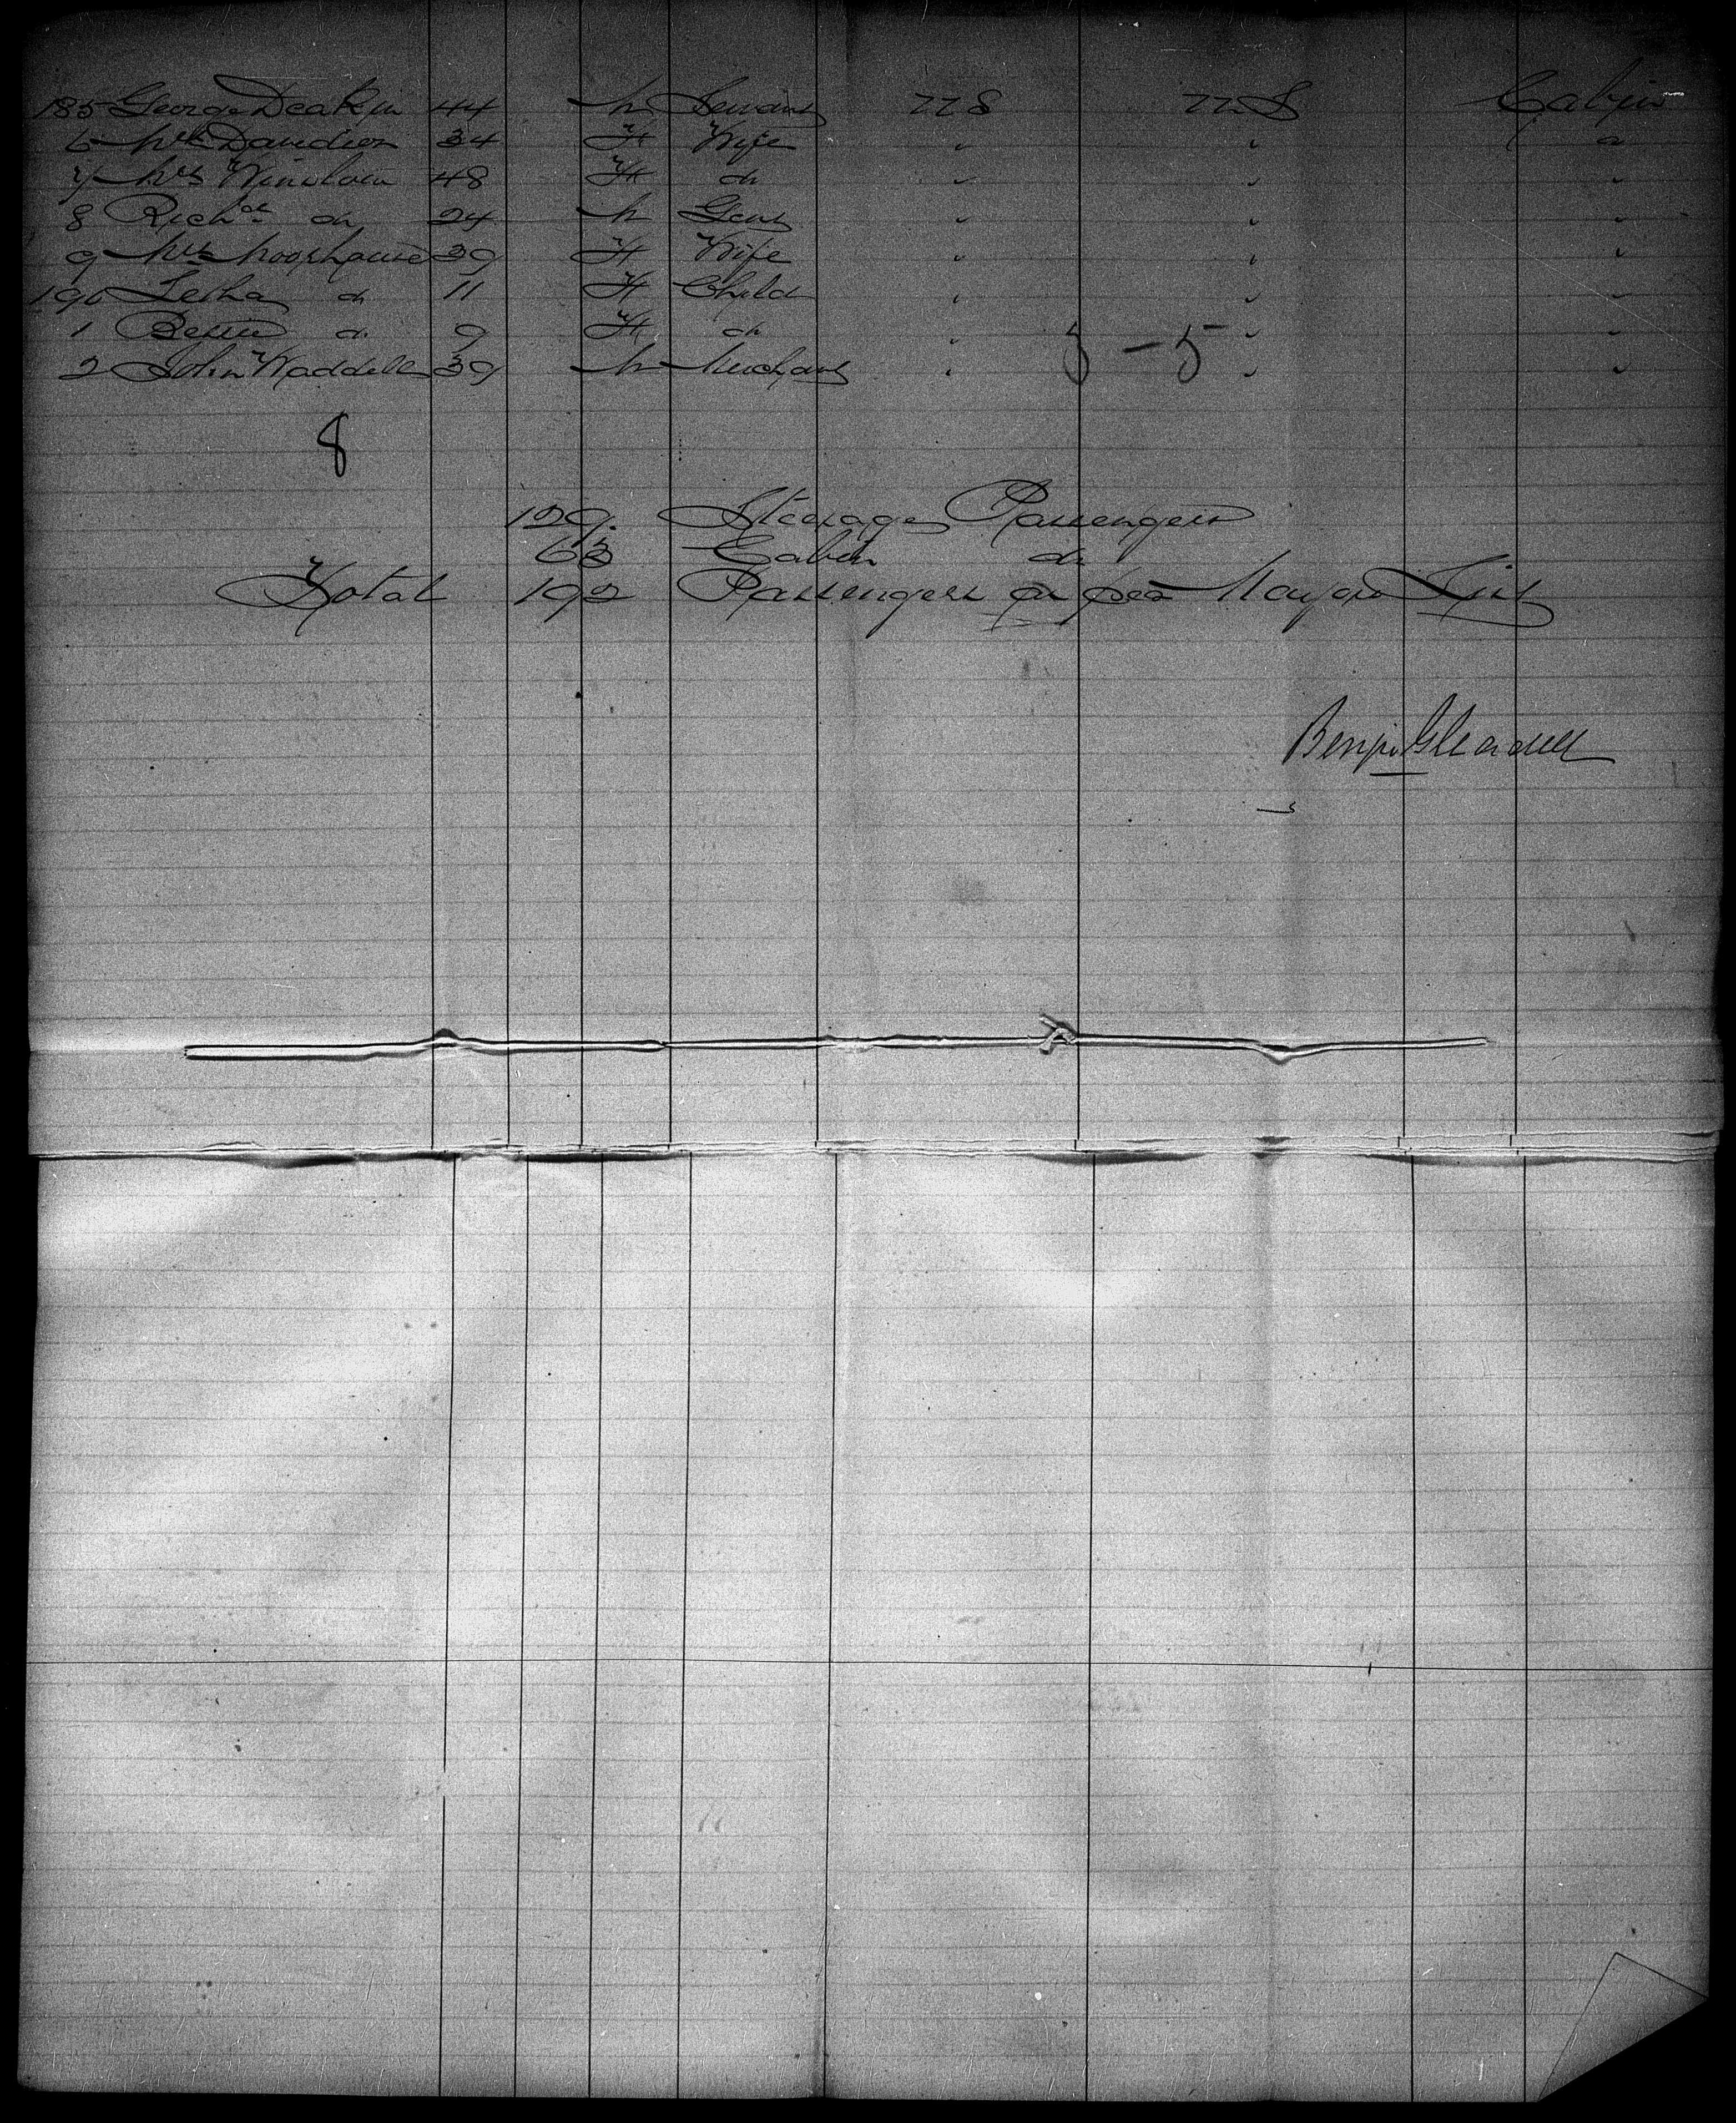 185 George Deakin 44 M Servant U S U S Cabin
6 Mrs 34 F Wife " " "
7 Mrs Winslow 48 F do " " "
8 Richd do 24 M Gent " " "
9 Mrs Moorhouse 39 F Wife " " "
190 Letha do 11 F Child " " "
1 Bessie do 9 F do " " "
2 John Waddell 39 M Merchant " " "
5 - 5
8
129 Steerage Passengers
63 Cabin do
Total 192 Passengers as per List
Benjn Gleadell